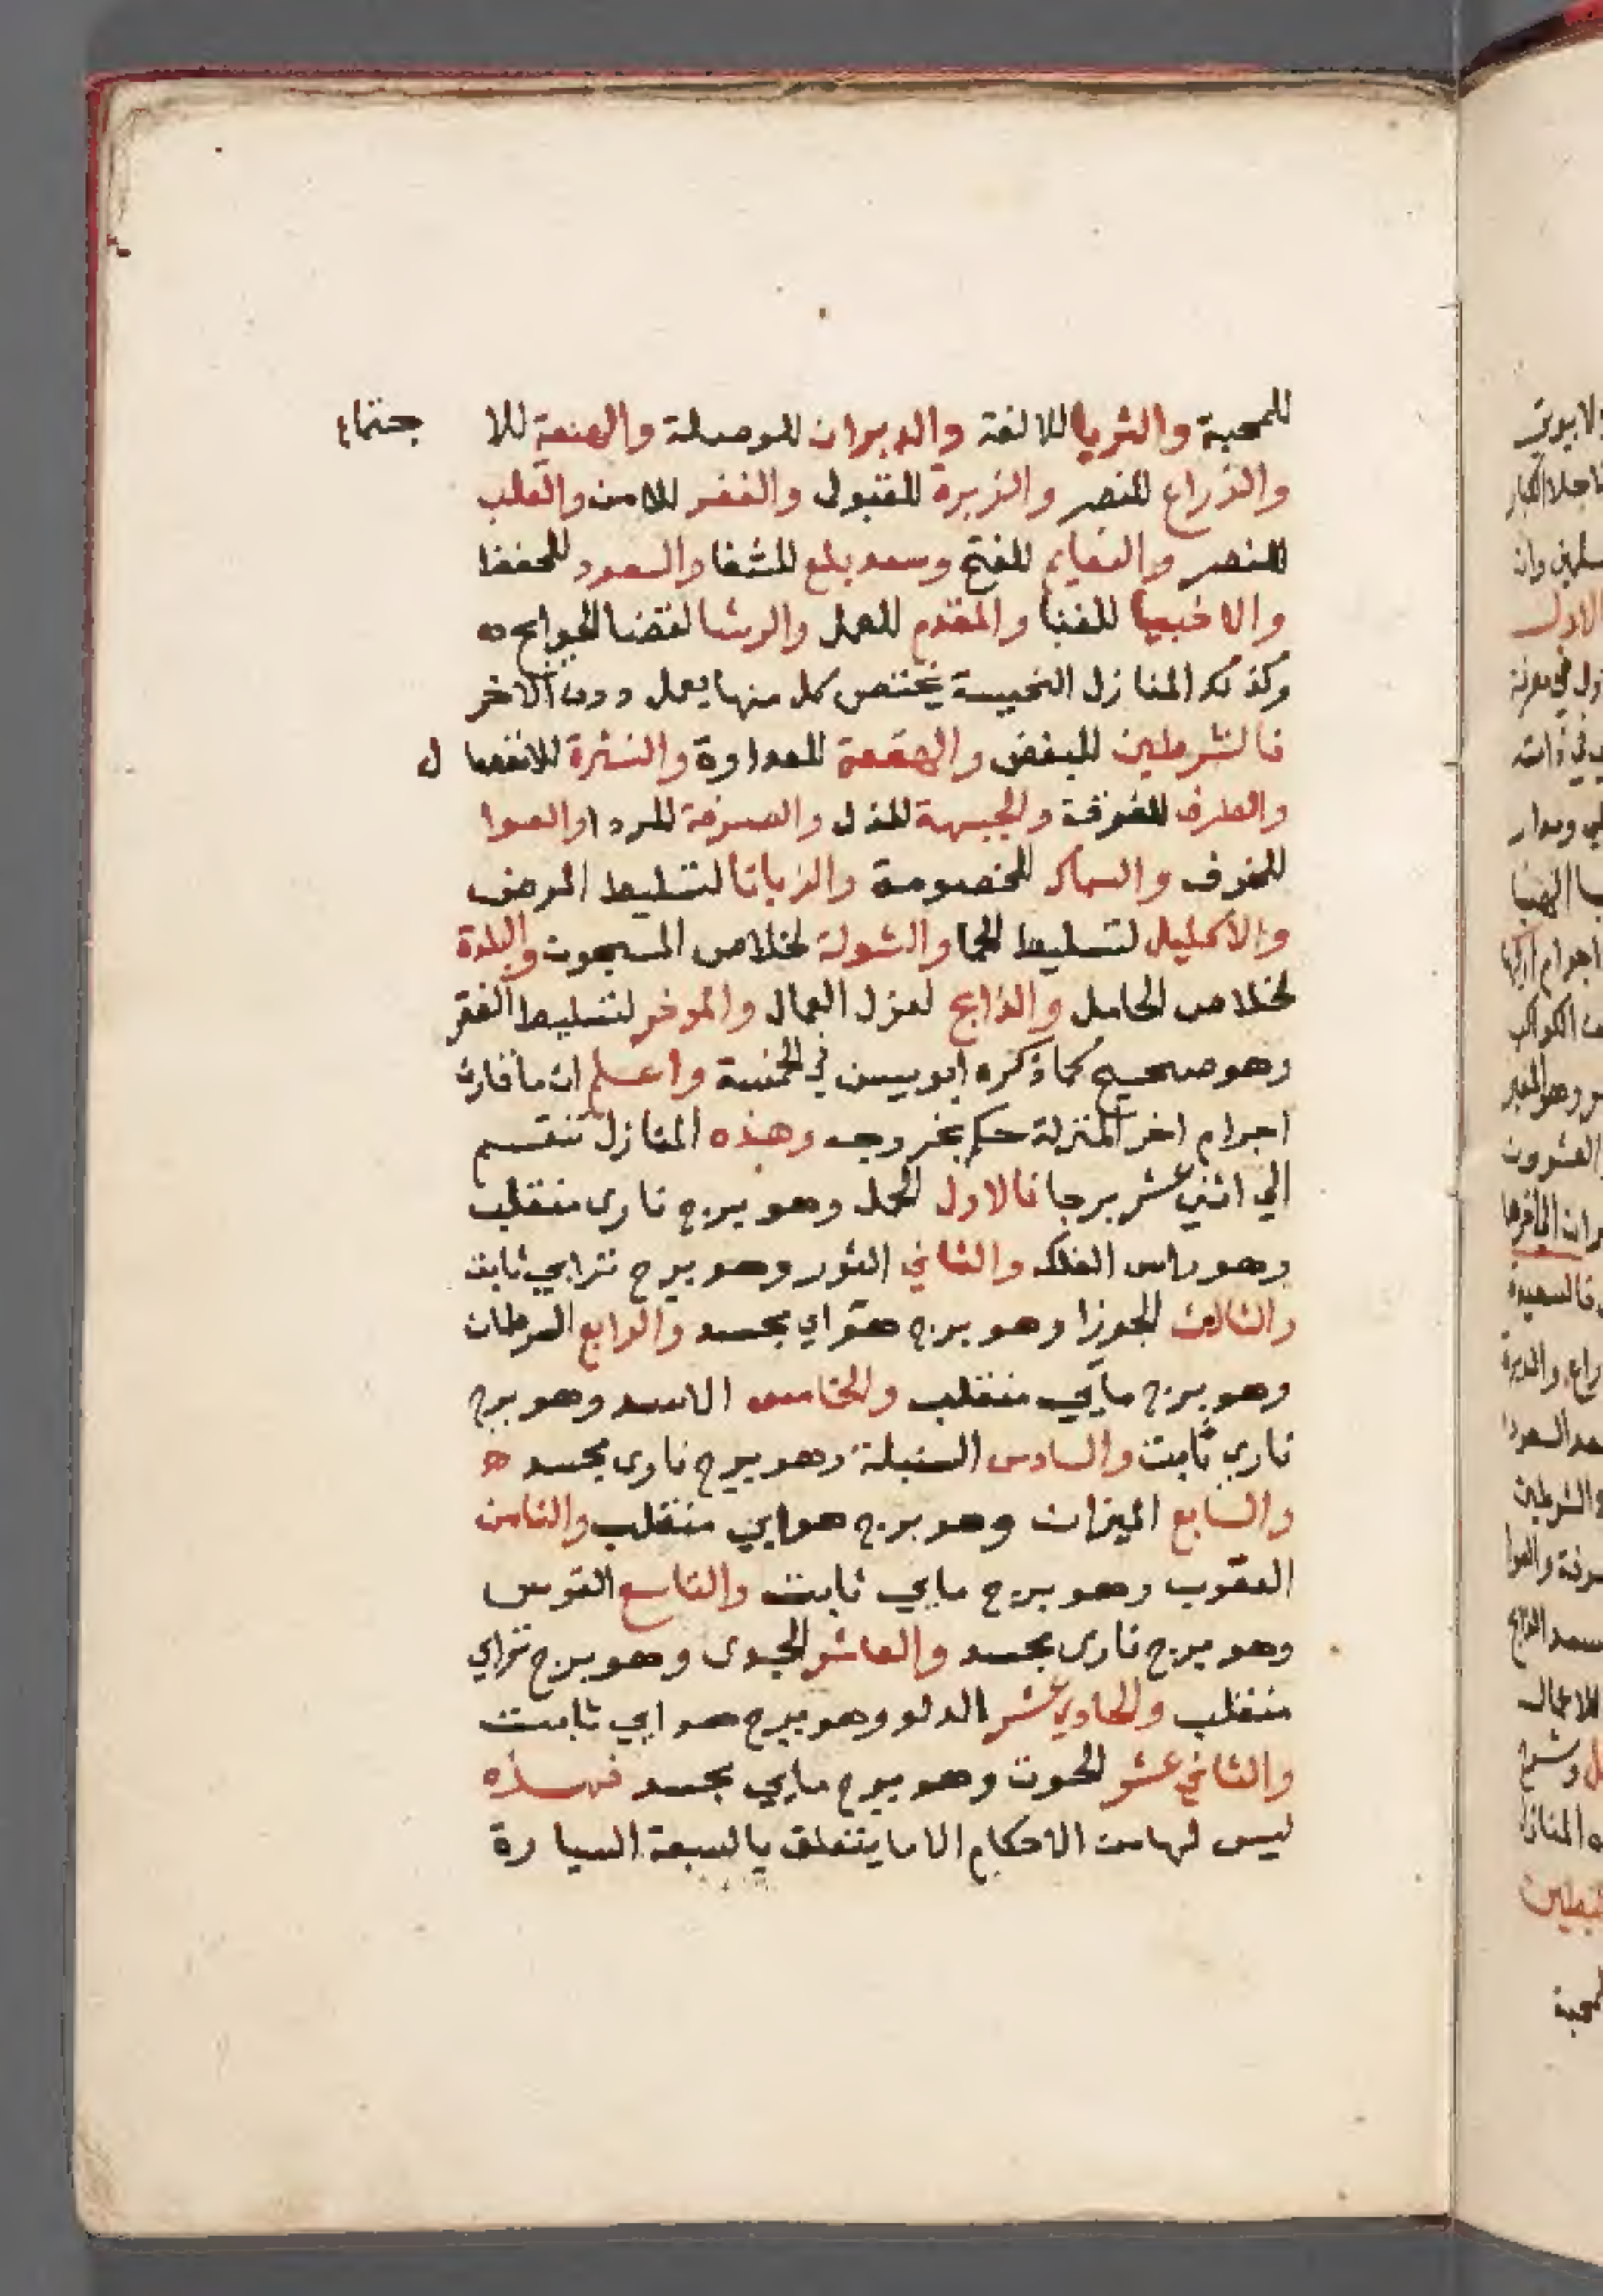 للمحبة والثريا للالفة والدبران للوصلة والهنعة للا جتماع
والذراع للنصر والزبرة للقبول والغفر للامن والقلب
للنصر والنعايم للفتح وسعد بلع للشفا والسعود للحفظ
والاخبيا للغنا والمقدم للعمل والرشا لقضا الحوايج ه
وكذلك المنازل النحيسة يختص كل منها بعمل دون الاخر
فالشرطين للبغض والهقعة للعداوة والنثرة للانفصا ل
والطرف للفرقة والجبهة للذل والصرفة للردا والعوا
للخوف والسماك للخصومة والزبانا لتسليط المرض
والاكليل لتسليط الحما والشولة لخلاص المسجون والبلدة
لخلاص الحامل والذابح لعزل العمال والموخر لتسليط الفقر
وهو صحيح كما ذكره ابو يسن في الخمسة واعلم ان ما قارن
اجرام اخر المنزلة حكم بخروجه وهذه المنازل تنقسم
الي اثني عشر برجا فالاول الحمل وهو برج ناري منقلب
وهو راس الفلك والثاني الثور وهو برج ترابي ثابت
والثالث الجوزا وهو برج هواي مجسد والرابع السرطان
وهو برج مآيي منقلب والخامس الاسد وهو برج
ناري ثابت والسادس السنبلة وهو برج ناري مجسد ه
والسابع الميزان وهو برج هوايي منقلب والثامن
العقرب وهو برج مايي ثابت والتاسع القوس
وهو برج ناري مجسد والعاشر الجدي وهو برج ترابي
منقلب والحادي عشر الدلو وهو برج هوايي ثابت
والثاني عشر الحوت وهو برج مايي مجسد فهذه
ليس لها من الاحكام الا ما يتعلق بالسبعة السيا رة